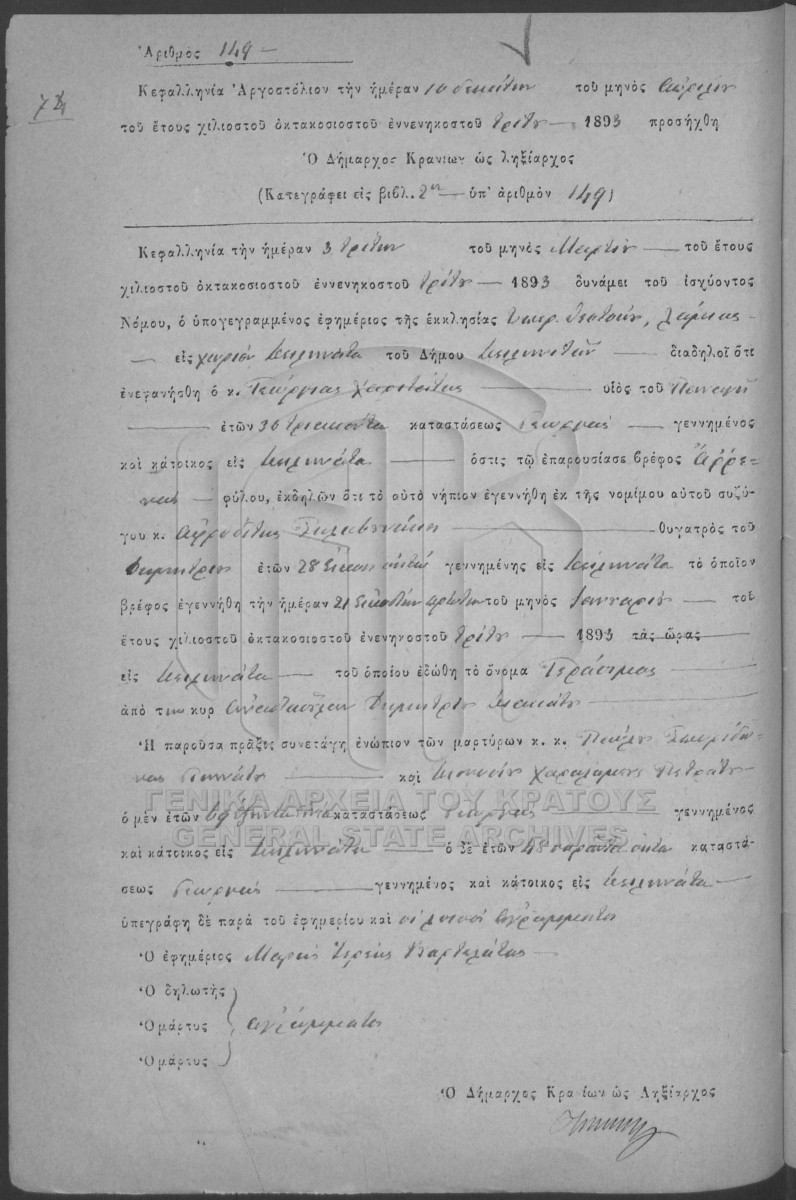 Ἀριθμὸς 149 —
74
Κεφαλληνία Ἀργοστόλιον τὴν ἡμέραν 10 δεκάτην τοῦ μηνὸς Ἀπριλίου
τοῦ ἔτους χιλιοστοῦ ὀκτακοσιοστοῦ ἐννενηκοστοῦ τρίτου — 1893 προσήχθη
Ὁ Δήμαρχος Κρανίων ὡς ληξίαρχος
(Κατεγράφει εἰς βιβλ. 2ον — ὑπ' ἀριθμὸν 149)
Κεφαλληνία τὴν ἡμέραν 3 τρίτην τοῦ μηνὸς Μαρτίου — τοῦ ἔτους
χιλιοστοῦ ὀκτακοσιοστοῦ ἐννενηκοστοῦ τρίτου — 1893 δυνάμει τοῦ ἰσχύοντος
Νόμου, ὁ ὑπογεγραμμένος ἐφημέριος τῆς ἐκκλησίας Ὑπερ. Θεοτόκου,
— εἰς χωρίον τοῦ Δήμου — διαδηλοῖ ὅτι
ἐνεφανήσθη ὁ κ. Γεώργιος — υἱὸς τοῦ Παναγῆ
— ἐτῶν 30 τριάκοντα καταστάσεως Γεωργὸς — γεννημένος
καὶ κάτοικος εἰς — ὅστις τῷ ἐπαρουσίασε βρέφος Ἄῤῥε-
νος — φύλου, ἐκδηλῶν ὅτι τὸ αὐτὸ νήπιον ἐγεννήθη ἐκ τῆς νομίμου αὐτοῦ συζύ-
γου κ. Ἀφροδίτης — θυγατρὸς τοῦ
Δημητρίου ἐτῶν 28 εἴκοσι ὀκτώ γεννημένης εἰς τὸ ὁποῖον
βρέφος ἐγεννήθη τὴν ἡμέραν 21 εἰκοστὴν πρώτην τοῦ μηνὸς Ἰανναρίου — τοῦ
ἔτους χιλιοστοῦ ὀκτακοσιοστοῦ ἐνενηκοστοῦ τρίτου — 1893 τὰς ὥρας
εἰς — τοῦ ὁποίου ἐδώθη τὸ ὄνομα Γεράσιμος —
ἀπὸ τὸν κυρ Δημητρίου —
Ἡ παροῦσα πρᾶξις συνετάγη ἐνώπιον τῶν μαρτύρων κ. κ. Παύλου Σπυρίδω-
νος — καὶ Χαραλάμπους Πετράτου
ὁ μὲν ἐτῶν καταστάσεως Γεωργὸς — γεννημένος
καὶ κάτοικος εἰς — ὁ δὲ ἐτῶν σαράντα ὀκτὼ καταστά-
σεως Γεωργὸς — γεννημένος καὶ κάτοικος εἰς —
ὑπεγράφη δὲ παρὰ τοῦ ἐφημερίου καὶ οἱ λοιποὶ ἀγράμματοι
Ὁ ἐφημέριος Ἱερεὺς —
Ὁ δηλωτὴς
Ὁ μάρτυς ἀγράμματοι
Ὁ μάρτυς
Ὁ Δήμαρχος Κρανίων ὡς Ληξίαρχος
ΓΕΝΙΚΑ ΑΡΧΕΙΑ ΤΟΥ ΚΡΑΤΟΥΣ
GENERAL STATE ARCHIVES